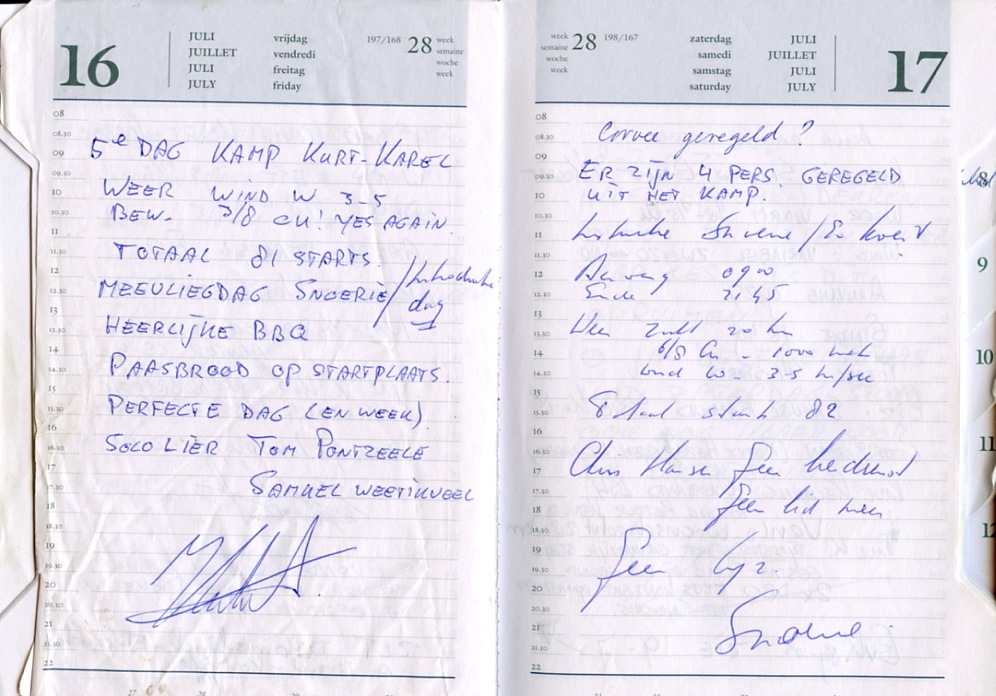 16
JULI
JUILLET
JULI
JULY
vrijdag
vendredi
freitag
friday
197/168 28
week
semaine
woche
week
08
08.30
09
09.30
10
10.30
11
11.30
12
12.30
13
13.30
14
14.30
15
15.30
16
16.30
17
17.30
18
18.30
19
19.30
20
20.30
21
21.30
22
5e DAG KAMP KURT-KAREL
WEER WIND W 3-5
BEW. 3/8 CU! YES AGAIN.
TOTAAL 81 STARTS.
MEEVLIEGDAG SNOERIE/
dag
HEERLIJKE BBQ
PAASBROOD OP STARTPLAATS.
PERFECTE DAG (EN WEEK)
SOLO LIER TOM PONTZEELE
SAMUEL WEETIKVEEL
week
semaine
woche
week
28 198/167
zaterdag
samedi
samstag
saturday
JULI
JUILLET
JULI
JULY
17
08
08.30
09
09.30
10
10.30
11
11.30
12
12.30
13
13.30
14
14.30
15
15.30
16
16.30
17
17.30
18
18.30
19
19.30
20
20.30
21
21.30
22
Corvee geregeld?
ER ZIJN 4 PERS. GEREGELD
UIT HET KAMP.
Aanvang 0900
Einde 2145
Weer Zicht 20 km
6/8 Cu - 1000
wind W- 3-5 m/sec
Totaal starts 82
Geen lid meer
Geen
8
9
10
11
12